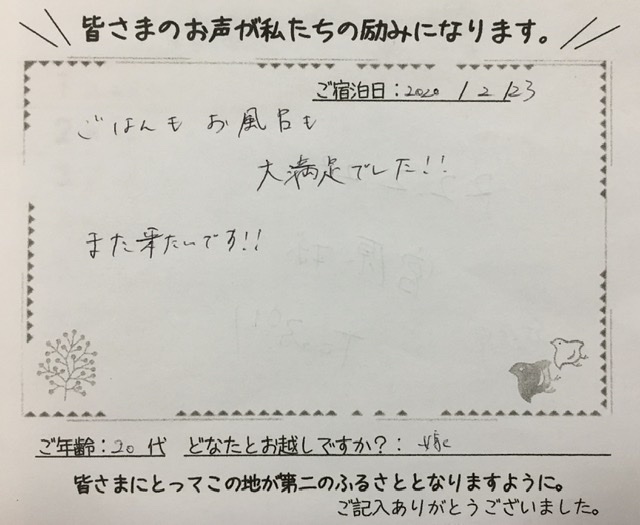 皆さまのお声が私たちの励みになります。
ご宿泊日：2020 / 2 / 23
ごはんも お風呂も
大満足でした!!
また来たいです!!
ご年齢：20 代 どなたとお越しですか？：
皆さまにとってこの地が第二のふるさととなりますように。
ご記入ありがとうございました。